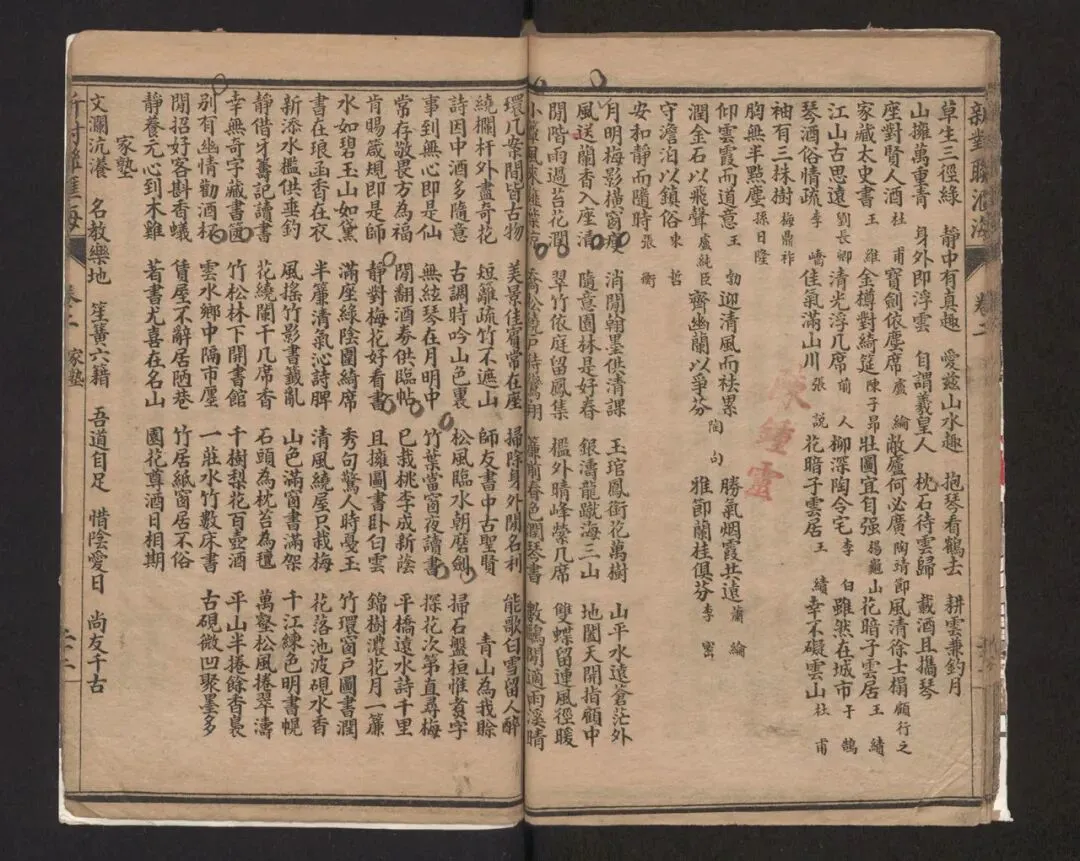 新對聯滙海 卷二
草生三徑綠 靜中有真趣 愛茲山水趣 抱琴看鶴去 耕雲兼釣月
山擁萬重青 身外即浮雲 自謂羲皇人 枕石待雲歸 載酒且攜琴
座對賢人酒 杜甫 寶劍依塵席 盧綸 敞廬何必廣 陶靖節 風清徐士榻 顧行之
家藏太史書 王維 金樽對綺筵 陳子昂 壯圖宜自强 楊龜山 花暗子雲居 王績
江山古思遠 劉長卿 清光浮几席 前人 柳深陶令宅 李白 雖然在城市 于鵠
琴酒俗情疏 李嶠 佳氣滿山川 張說 花暗子雲居 王績 幸不礙雲山 杜甫
袖有三株樹 梅鼎祚
胸無半點塵 孫日隆
仰雲霞而道意 王勃 迎清風而祛累 陶句 勝氣烟霞共遠 蕭綸
潤金石以飛聲 盧純臣 齊幽蘭以爭芬 雅節蘭桂俱芬 李密
守澹泊以鎮俗 束晳
安和靜而隨時 張衡
月明梅影橫窗瘦 消閒翰墨供清課 玉琯鳳銜花萬樹 山平水遠蒼茫外
風送蘭香入座清 隨意園林是好春 銀濤龍蹴海三山 地闊天開指顧中
閒階雨過苔花潤 翠竹依庭留鳳集 檻外晴峰縈几席 雙蝶留連風徑暖
小 風來 葉 喬松繞戶待鸞翔 簾前春色潤琴書 數鷗閒適雨溪晴
陳鍾靈
環几案間皆古物 美景佳賓常在座 掃除身外閒名利 能歌白雪留人醉
繞欄杆外盡奇花 短籬疏竹不遮山 師友書中古聖賢 青山為我賒
詩因中酒多隨意 古調時吟山色裏 松風臨水朝磨劍 掃石盤桓惟煑字
事到無心即是仙 無絃琴在月明中 竹葉當窗夜讀書 探花次第直尋梅
常存敬畏方為福 閒翻酒券供臨帖 已栽桃李成新陰 平橋遠水詩千里
肯賜箴規即是師 靜對梅花好看書 且擁圖書臥白雲 錦樹濃花月一簾
水如碧玉山如黛 滿座綠陰圍綺席 秀句驚人時憂玉 竹環窗戶圖書潤
書在琅函香在衣 半簾清氣沁詩脾 清風繞屋只栽梅 花落池波硯水香
新添水檻供垂釣 風搖竹影書籤亂 山色滿窗書滿架 千江練色明書幌
靜借牙籌記讀書 花繞闌干几席香 石頭為枕苔為氊 萬壑松風捲翠濤
幸無奇字藏書篋 竹松林下開書館 千樹梨花百壺酒 平山半捲餘香裊
別有幽情勸酒杯 雲水鄉中隔市廛 一莊水竹數床書 古硯微凹聚墨多
閒招好客斟香蟻 賃屋不辭居陋巷 竹居紙窗居不俗
靜養元心到木雞 著書尤喜在名山 園花尊酒日相期
家塾
文瀾沆瀁 名教樂地 笙簧六籍 吾道自足 惜陰愛日 尚友千古
新對聯滙海 卷二 家塾